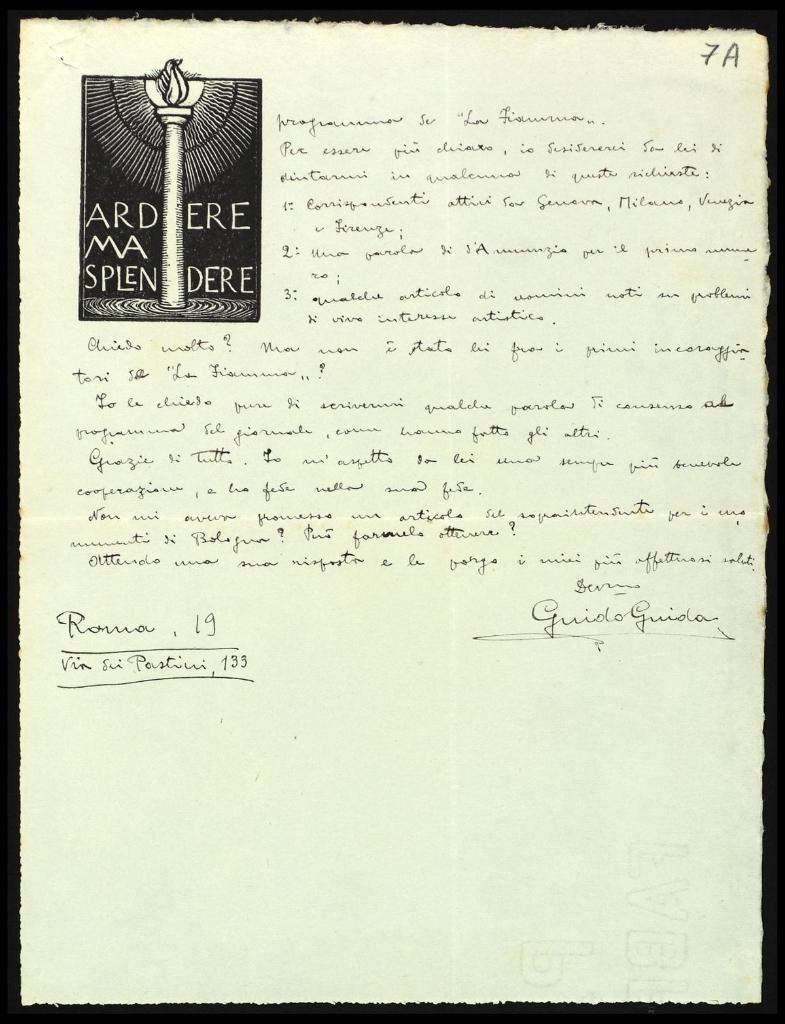 7A
ARDERE
MA
SPLENDERE
programma de "La Fiamma„.
Per essere più chiaro, io desidererei da lei di
aiutarmi in qualcuna di queste richieste:
1º: Corrispondenti attivi da Genova, Milano, Venezia
e Firenze;
2º: Una parola di d'Annunzio per il primo nume-
ro;
3º: qualche articolo di uomini noti su problemi
di vivo interesse artistico.
Chiedo molto? Ma non è stato lei fra i primi incoraggia-
tori de "La Fiamma„?
Io le chiedo pure di scrivermi qualche parola di consenso al
programma del giornale, come hanno fatto gli altri.
Grazie di tutto. Io m'aspetto da lei una sempre più benevola
cooperazione, e ho fede nella sua fede.
Non mi aveva promesso un articolo del sopraintendente per i mo-
numenti di Bologna? Può farmelo ottenere?
Attendo una sua risposta e le porgo i miei più affettuosi saluti.
Dev.mo
Guido Guida
Roma, 19
Via dei Pastini, 133